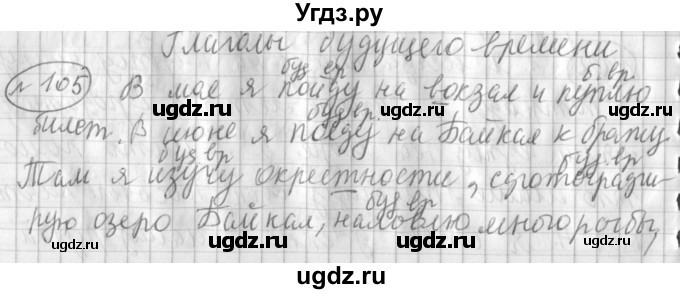 Угдз.ру
Глаголы будущего времени
буд вр б.вр
№105 В мае я пойду на вокзал и куплю
буд вр.
билет. В июне я поеду на Байкал к брату
буд вр буд. вр
Там я изучу окрестности, сфотографи-
буд вр
рую озеро Байкал, наловлю много рыбы,
ugdz.ru ugdz.ru ugdz.ru
ugdz.ru ugdz.ru
ugdz.ru ugdz.ru ugdz.ru
ugdz.ru ugdz.ru
ugdz.ru